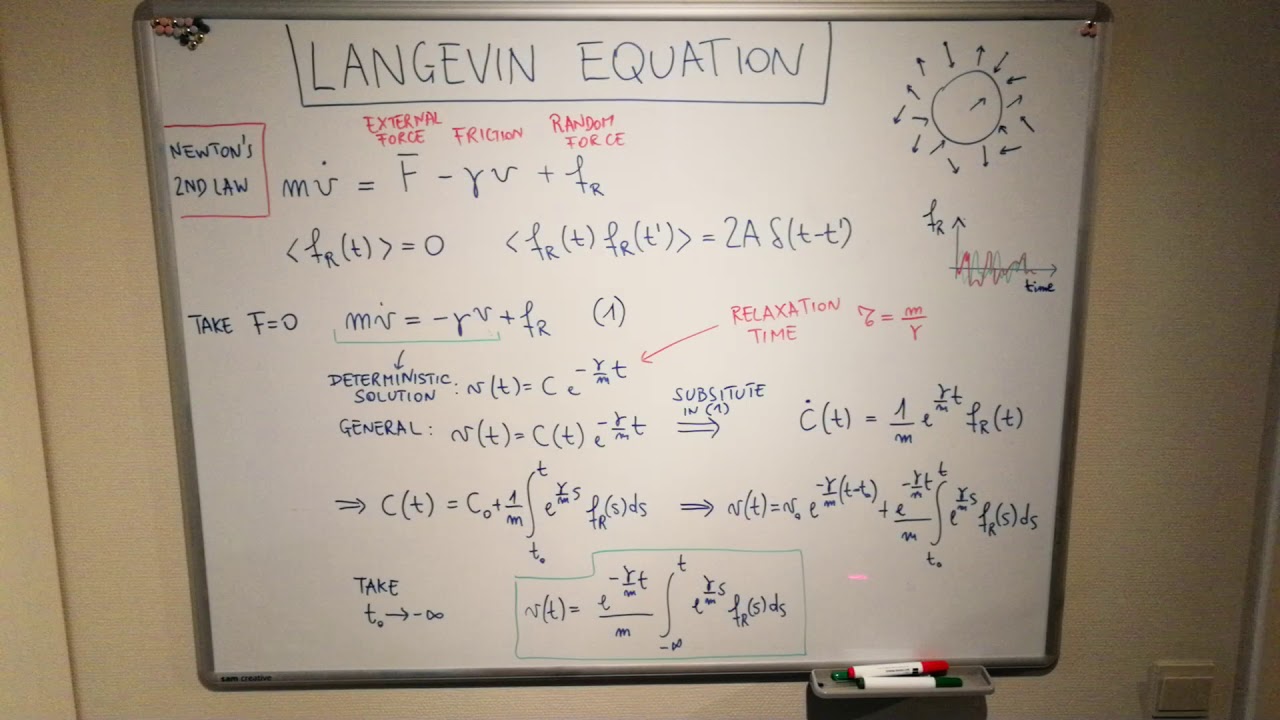 LANGEVIN EQUATION
EXTERNAL FORCE FRICTION RANDOM FORCE
NEWTON'S
2ND LAW
mv̇ = F̄ − γv + f_R
⟨f_R(t)⟩ = 0 ⟨f_R(t) f_R(t')⟩ = 2A δ(t-t')
f_R
time
TAKE F=0 mv̇ = −γv + f_R (1)
RELAXATION TIME τ = m/γ
DETERMINISTIC SOLUTION : v(t) = C e^{−γ/m t}
GENERAL : v(t) = C(t) e^{−γ/m t} SUBSITUTE IN (1) ⇒ Ċ(t) = 1/m e^{γ/m t} f_R(t)
⇒ C(t) = C₀ + 1/m ∫_{t₀}^{t} e^{γ/m s} f_R(s) ds ⇒ v(t) = v₀ e^{−γ/m (t−t₀)} + e^{−γ/m t}/m ∫_{t₀}^{t} e^{γ/m s} f_R(s) ds
TAKE
t₀ → −∞
v(t) = e^{−γ/m t}/m ∫_{−∞}^{t} e^{γ/m s} f_R(s) ds
sam creative